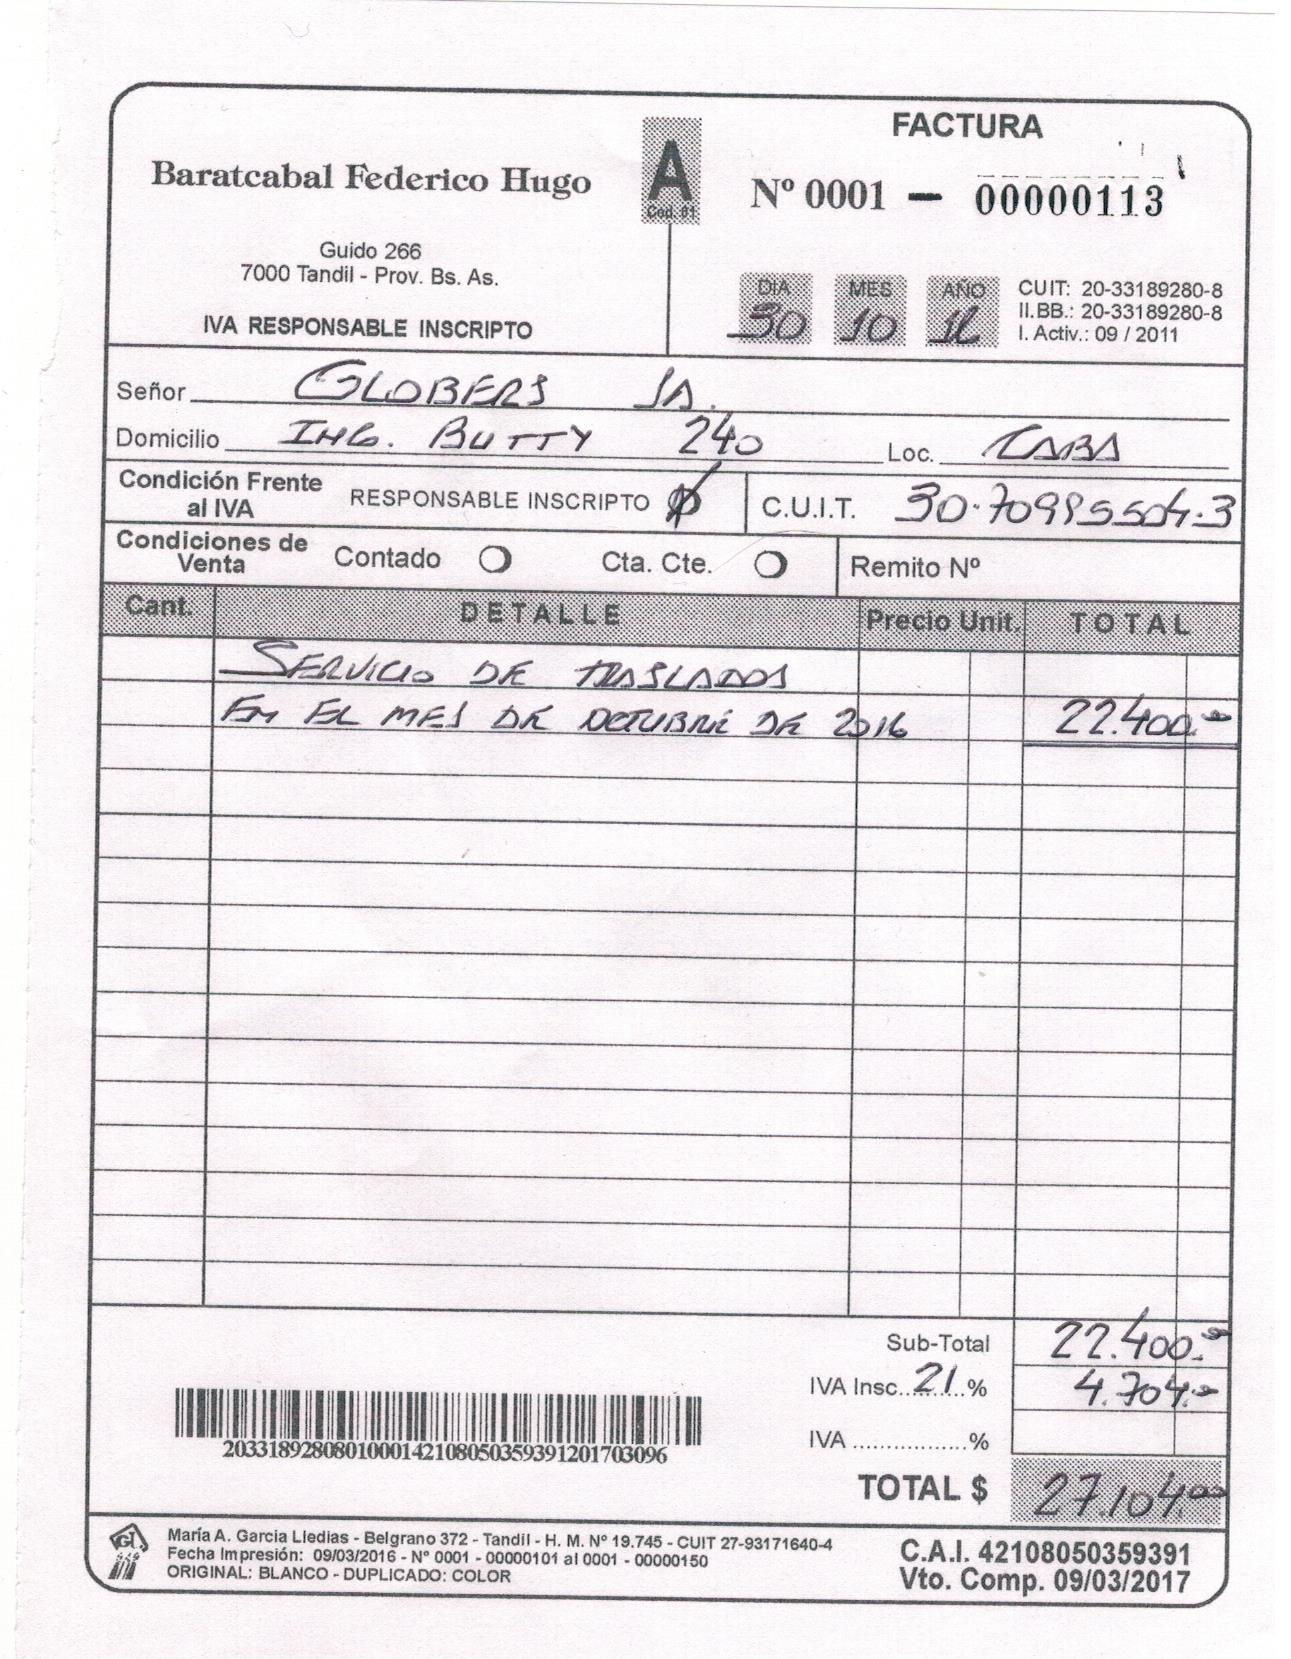 FACTURA
Baratcabal Federico Hugo
A
Cod. 01
Nº 0001 - 00000113
Guido 266
7000 Tandil - Prov. Bs. As.
IVA RESPONSABLE INSCRIPTO
DIA MES AÑO
30 10 16
CUIT: 20-33189280-8
II.BB.: 20-33189280-8
I. Activ.: 09 / 2011
Señor GLOBERS SA.
Domicilio ING. BUTTY 240 Loc. CABA
Condición Frente al IVA RESPONSABLE INSCRIPTO C.U.I.T. 30-70985504-3
Condiciones de Venta Contado Cta. Cte. Remito Nº
Cant. DETALLE Precio Unit. TOTAL
SERVICIO DE TRASLADOS
EN EL MES DE OCTUBRE DE 2016 22.400.00
Sub-Total 22.400.00
IVA Insc..21..% 4.704.00
IVA .................%
TOTAL $ 27.104.00
2033189280801000142108050359391201703096
María A. Garcia Lledias - Belgrano 372 - Tandil - H. M. Nº 19.745 - CUIT 27-93171640-4
Fecha Impresión: 09/03/2016 - Nº 0001 - 00000101 al 0001 - 00000150
ORIGINAL: BLANCO - DUPLICADO: COLOR
C.A.I. 42108050359391
Vto. Comp. 09/03/2017